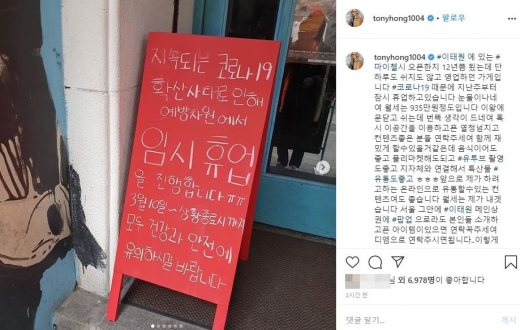 지속되는 코로나19
확산사태로 인해
예방차원에서
임시 휴업
을 진행합니다ㅠㅠ
3월10일~상황종료시까지
모두 건강과 안전에
유의하시길 바랍니다
tonyhong1004 • 팔로우
tonyhong1004 #이태원 에 있는 #
마이첼시 오픈한지 12년쯤 됬는데 단
하루도 쉬지도 않고 영업하던 가게입
니다 #코로나19 때문에 지난주부터
잠시 휴업하고있습니다 눈물이나네
여 월세는 935만원정도입니다 이왕에
문닫고 쉬는데 번뜩 생각이 드네여 혹
시 이공간을 이용하고픈 열정넘치고
컨텐츠좋은 분들 연락주세여 함께 재
밌게 할수있을거같은데 음식이어도
좋고 플리마켓해도되고 #유투브 촬영
도좋고 지자체와 연결해서 특산물 #
유통도좋고 ㅎㅎㅎ앞으로 제가 하려
고하는 온라인으로 유통할수있는 컨
텐츠여도 좋습니다 월세는 제가 내겠
습니다 서울 그안에 #이태원 메인상
권에 #팝업 으로라도 본인들 소개하
고픈 아이템있으면 연락꼭주세여 디
엠으로 연락주시면됩니다..이렇게
님 외 6,978명이 좋아합니다
2시간 전
댓글 달기...